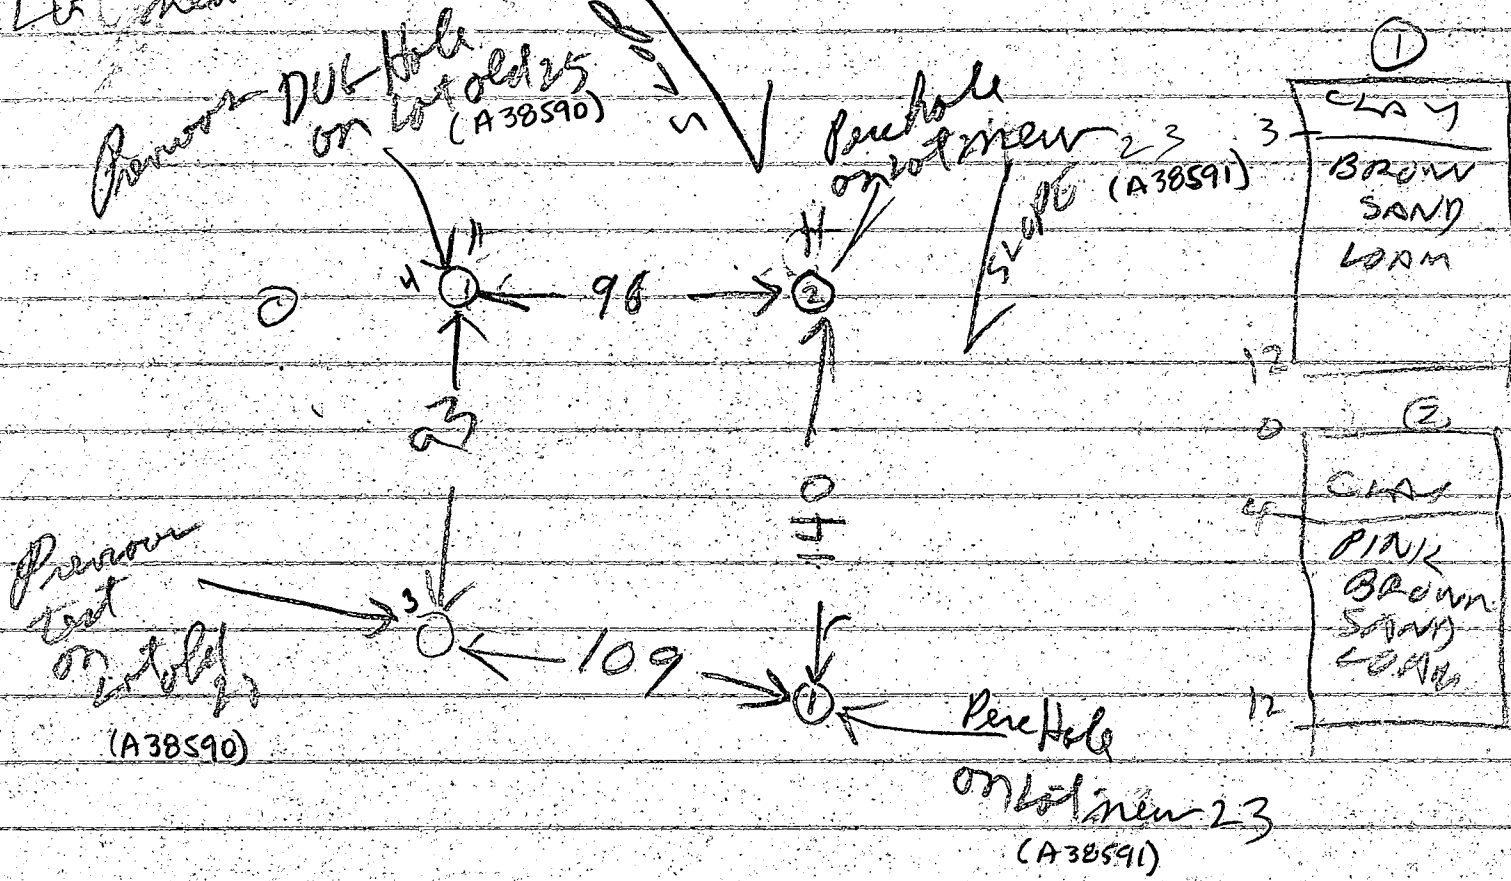 Lot new
Previous DUG Hole
on Lot old 25
(A38590)
Perc hole
on Lot new 23
(A38591)
SLOPE
1
CLAY
3
BROWN
SAND
LOAM
12
1
96
2
140
0
2
CLAY
4
PINK
BROWN
SAND
LOAM
12
Previous
test
on
Lot old
(A38590)
3
109
1
Perc Hole
on Lot new 23
(A38591)